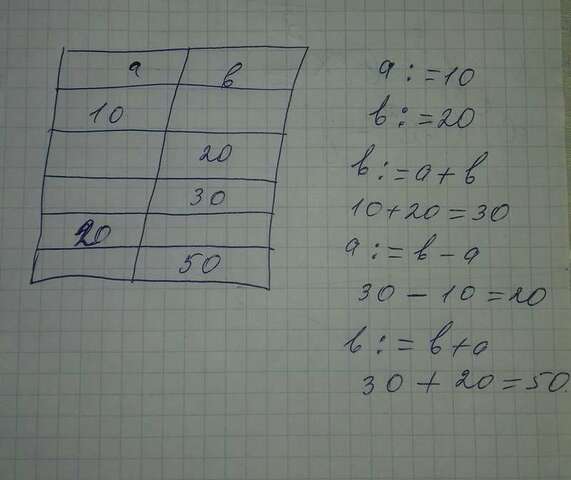 a в
10
20
30
20
50
a := 10
в := 20
в := a + в
10 + 20 = 30
a := в - a
30 - 10 = 20
в := в + a
30 + 20 = 50.